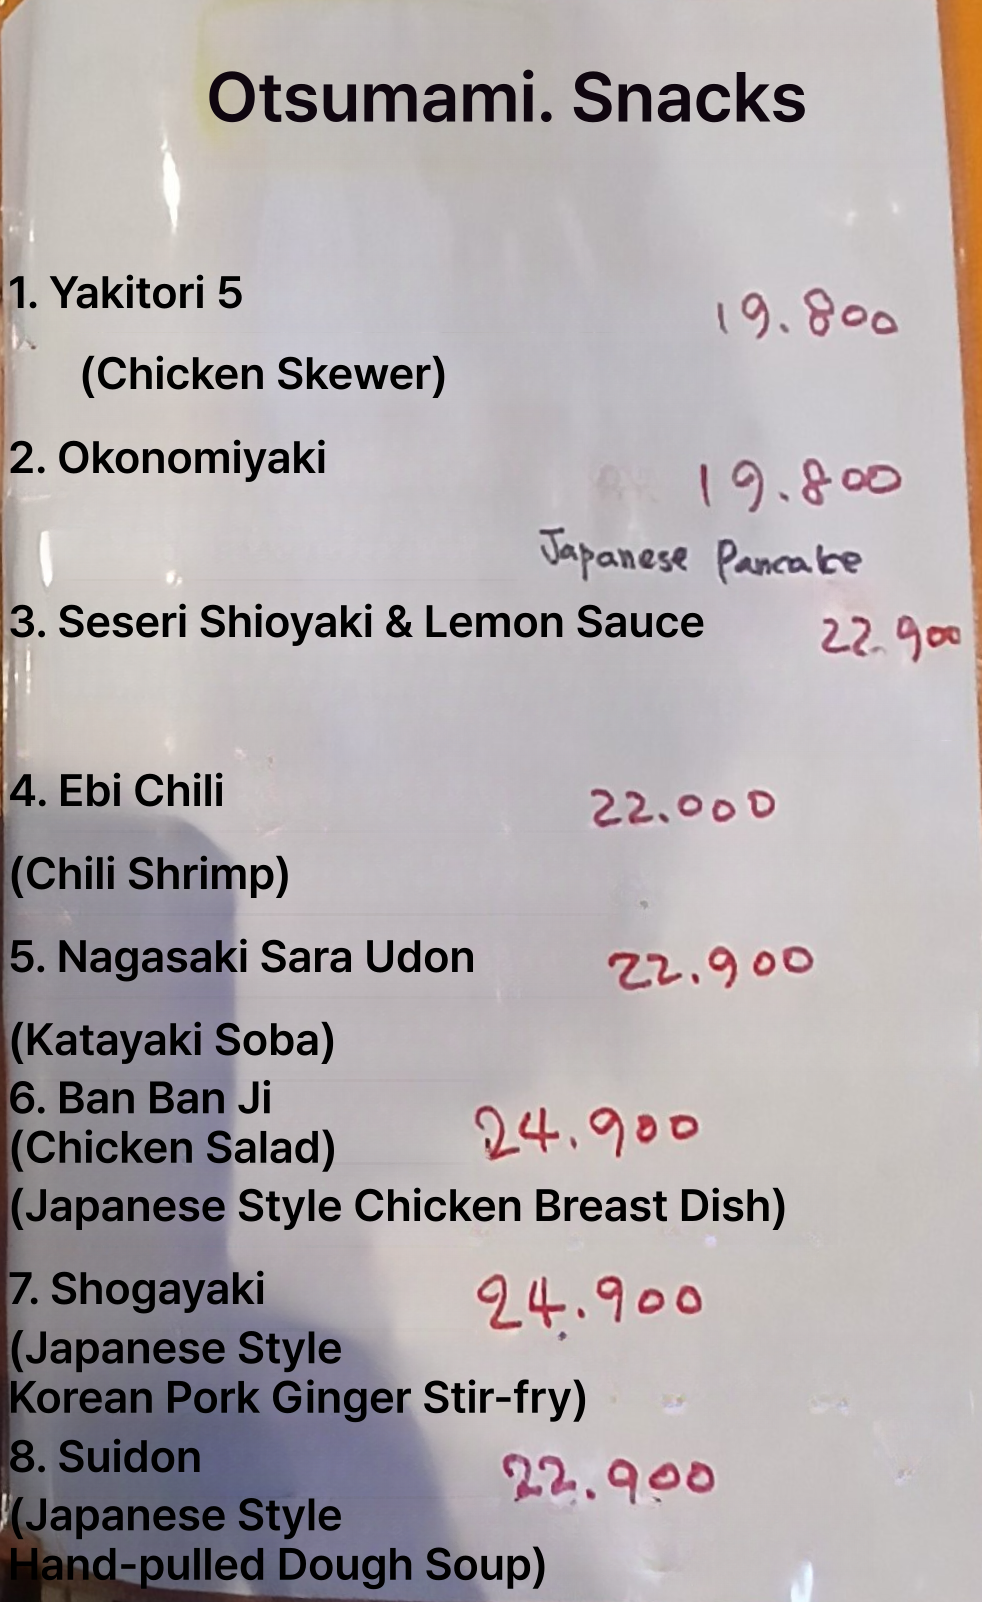 Otsumami. Snacks
1. Yakitori 5
19.800
(Chicken Skewer)
2. Okonomiyaki
19.800
Japanese Pancake
3. Seseri Shioyaki & Lemon Sauce 22.900
4. Ebi Chili 22.000
(Chili Shrimp)
5. Nagasaki Sara Udon 22.900
(Katayaki Soba)
6. Ban Ban Ji
24.900
(Chicken Salad)
(Japanese Style Chicken Breast Dish)
7. Shogayaki 24.900
(Japanese Style
Korean Pork Ginger Stir-fry)
8. Suidon 22.900
(Japanese Style
Hand-pulled Dough Soup)